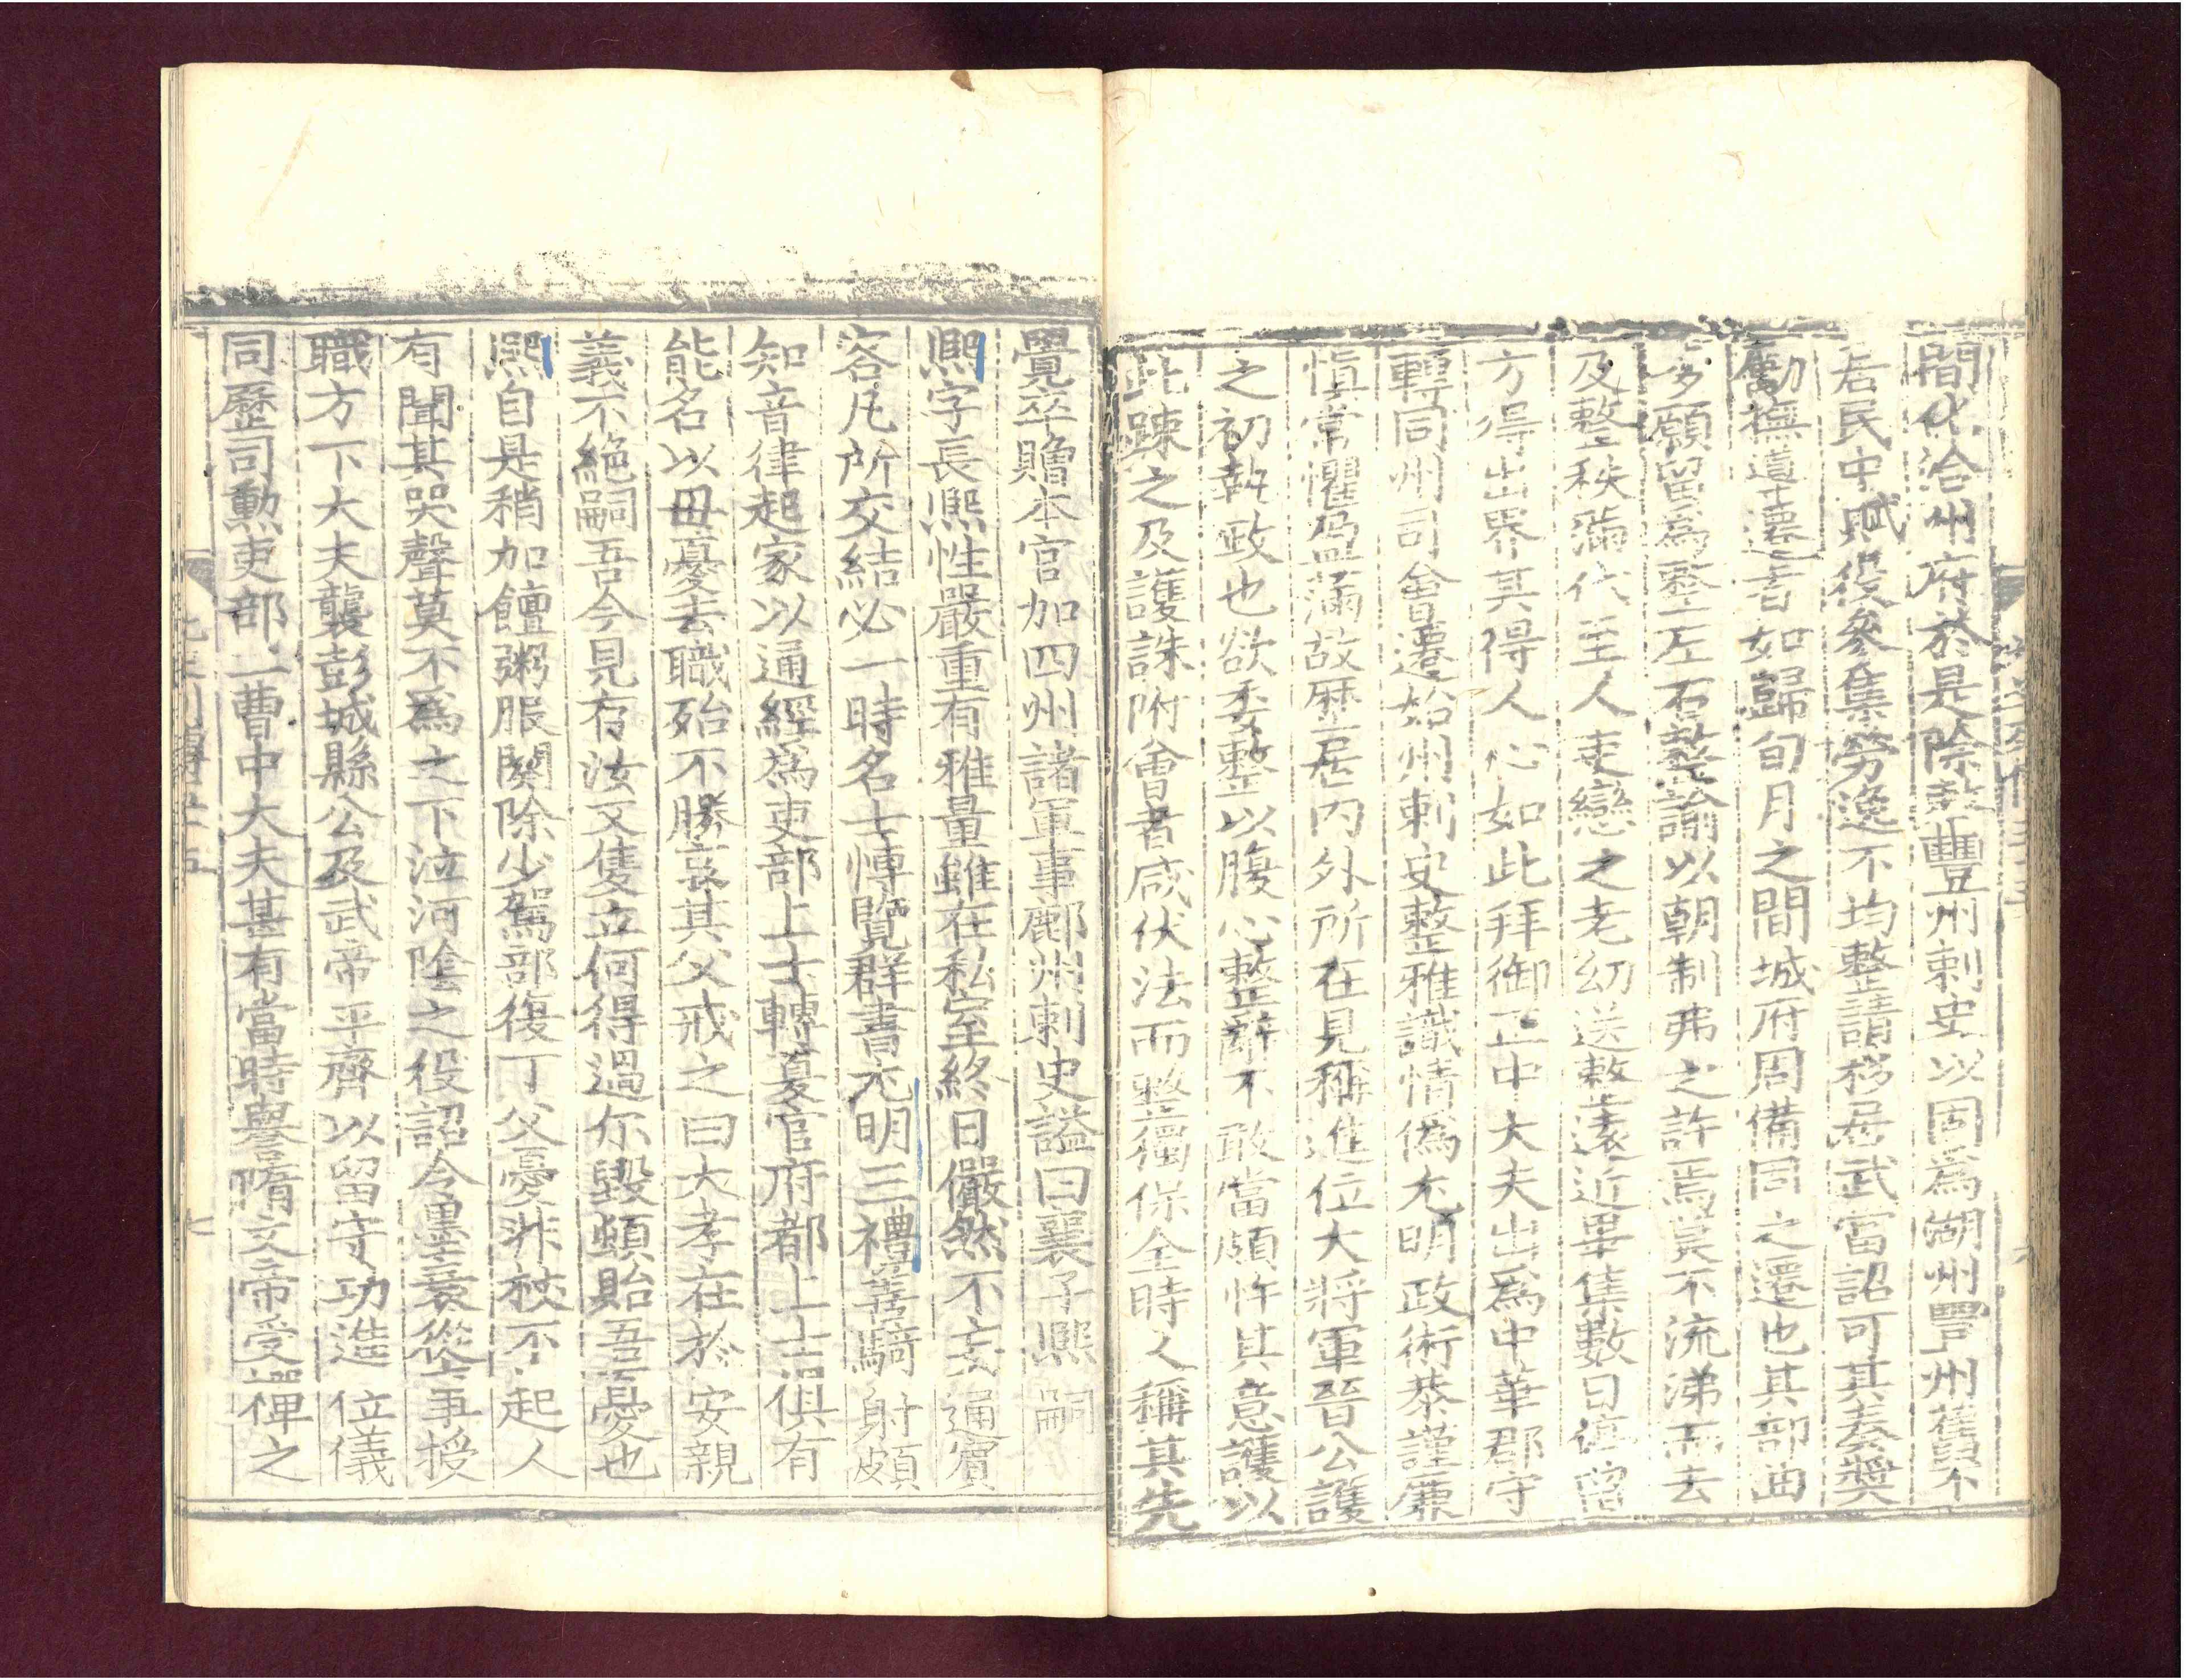 間化洽州府於是除整豐州刺史以固爲湖州豐州舊不
居民中賦役參集勞逸不均整請移居武當詔可其奏奬
勵撫導遷者如歸旬月之間城府周備固之還也其部曲
多願留爲整左右整諭以朝制弗之許焉莫不流涕而去
及整秩滿代至人吏戀之老幼送整遠近畢集數日停留
方得出界其得人心如此拜御正中大夫出爲中華郡守
轉同州司會遷始州刺史整雅識情僞尤明政術恭謹廉
愼常懼盈滿故歷居內外所在見稱進位大將軍晉公護
之初執政也欲委整以腹心整辭不敢當頗忤其意護以
此踈之及護誅附會者咸伏法而整獨保全時人稱其先
覺卒贈本官加四州諸軍事鄜州刺史謚曰襄子熙嗣
熙字長熙性嚴重有雅量雖在私室終日儼然不妄通賓
客凡所交結必一時名士博覽群書尤明三禮善騎射頗
知音律起家以通經爲吏部上士轉夏官府都上士俱有
能名以母憂去職殆不勝哀其父戒之曰大孝在於安親
義不絶嗣吾今見存汝又隻立何得過尔毀頓貽吾憂也
熙自是稍加饘粥服闋除少駕部復丁父憂非杖不起人
有聞其哭聲莫不爲之下泣河陰之役詔令墨衰從事授
職方下大夫襲彭城縣公及武帝平齊以留守功進位儀
同歷司勳吏部二曹中大夫甚有當時譽隋文帝受禪之